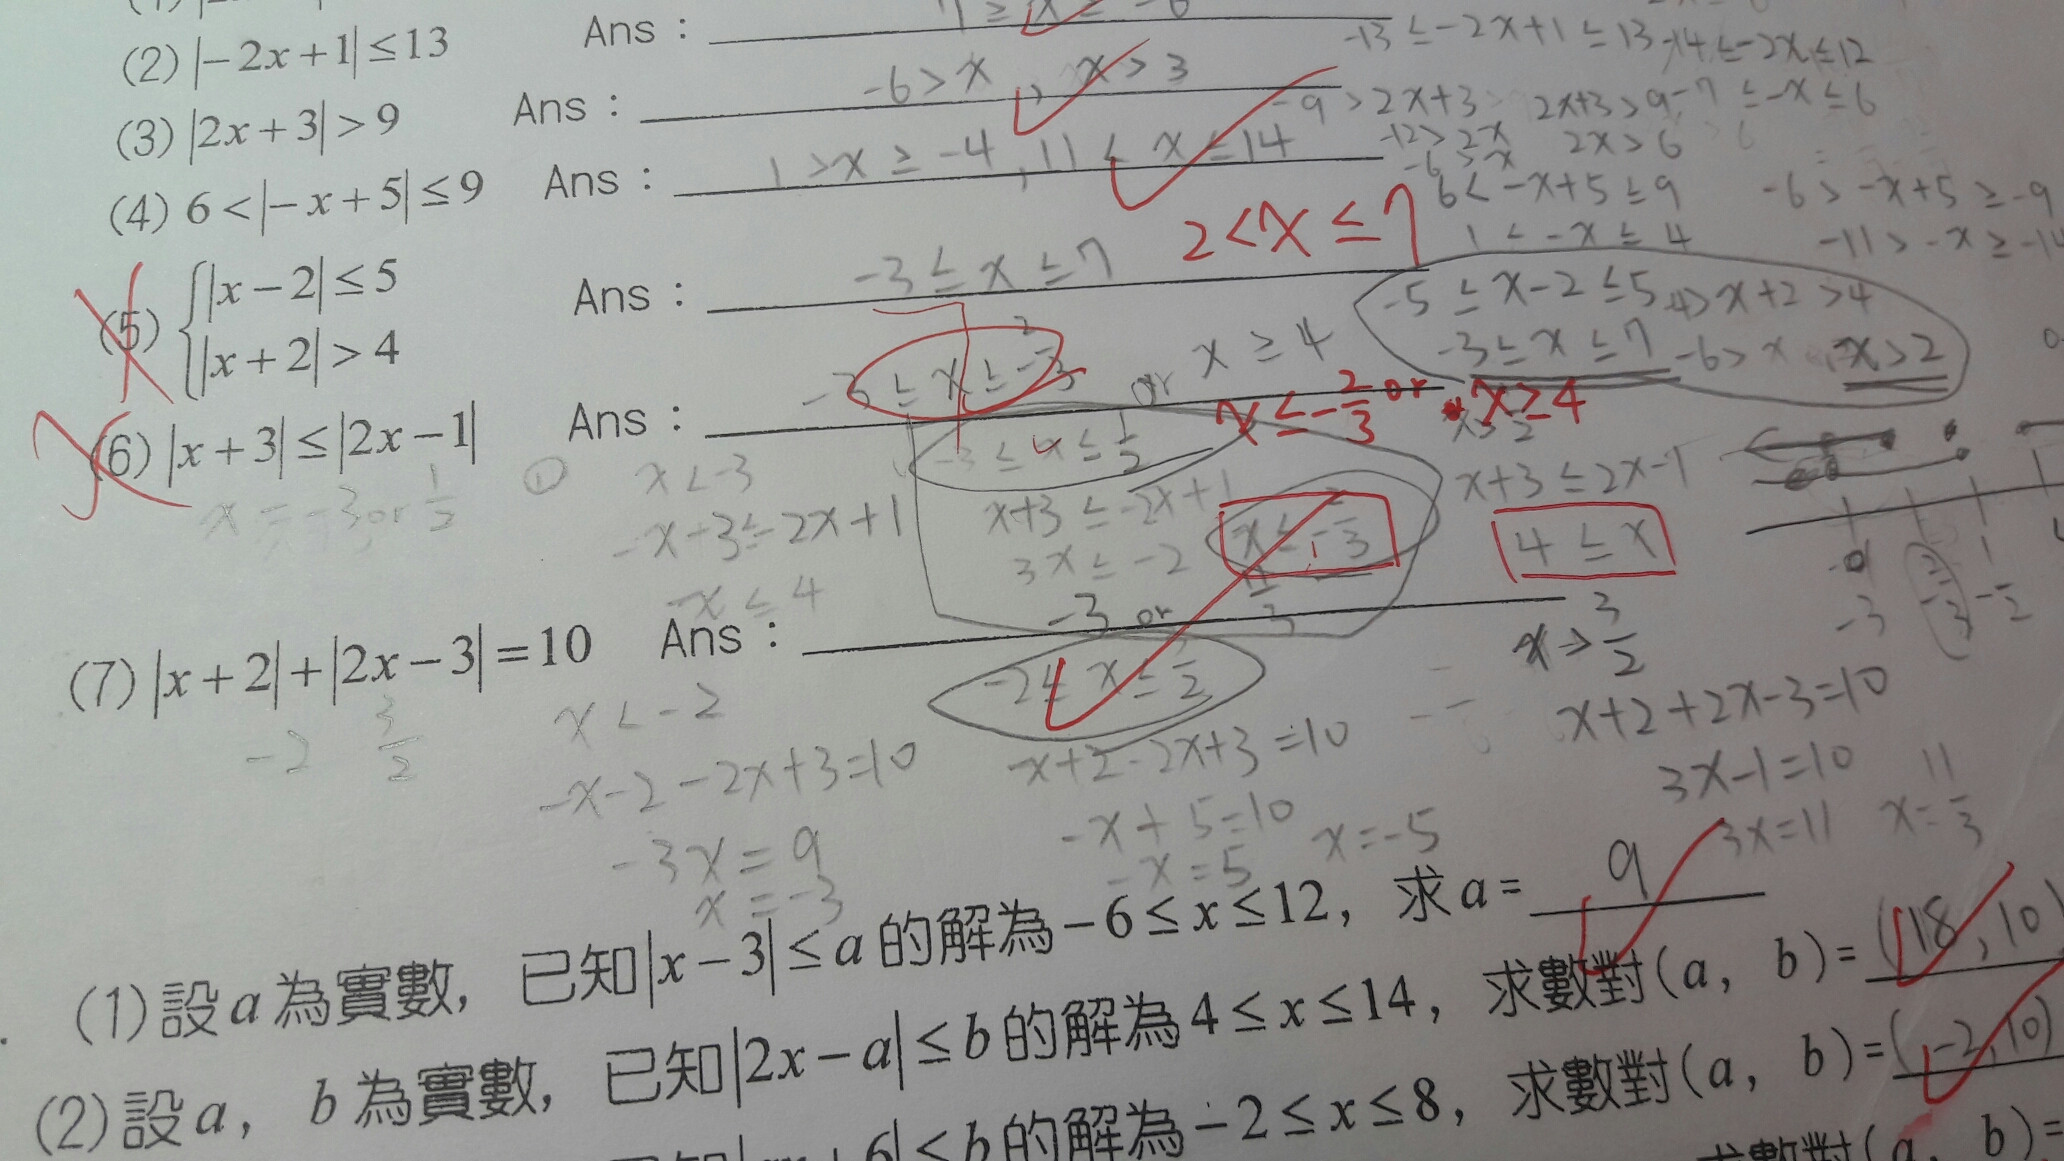 (2) |-2x+1| ≤ 13 Ans： 7 ≥ x ≥ -6 -13 ≤ -2x+1 ≤ 13 -14 ≤ -2x ≤ 12
(3) |2x+3| > 9 Ans： -6 > x , x > 3 -9 > 2x+3 2x+3 > 9 -7 ≤ -x ≤ 6
-12 > 2x 2x > 6
-6 > x
(4) 6 < |-x+5| ≤ 9 Ans： 1 > x ≥ -4 , 11 < x ≤ 14 6 < -x+5 ≤ 9 -6 > -x+5 ≥ -9
2 < x ≤ 7 1 < -x ≤ 4 -11 > -x ≥ -14
(5) { |x-2| ≤ 5 Ans： -3 ≤ x ≤ 7 -5 ≤ x-2 ≤ 5 -4 > x+2 > 4
|x+2| > 4 -3 ≤ x ≤ 7 -6 > x , x > 2
(6) |x+3| ≤ |2x-1| Ans： -3 ≤ x ≤ -2/3 or x ≥ 4 x ≤ -2/3 or x ≥ 4
x = -3 or 1/2 ① x < -3 -3 ≤ x ≤ 1/2 x > 1/2
-x-3 ≤ -2x+1 x+3 ≤ -2x+1 x+3 ≤ 2x-1
3x ≤ -2 x ≤ -2/3 4 ≤ x
-x ≤ 4
(7) |x+2|+|2x-3|=10 Ans： -3 or 11/3
-2 3/2 x < -2 -2 ≤ x ≤ 3/2 x > 3/2
-x-2-2x+3=10 x+2-2x+3=10 x+2+2x-3=10
-3x=9 -x+5=10 3x-1=10
x=-3 -x=5 x=-5 3x=11 x=11/3
(1)設a為實數，已知|x-3| ≤ a的解為-6 ≤ x ≤ 12，求a= 9
(2)設a，b為實數，已知|2x-a| ≤ b的解為4 ≤ x ≤ 14，求數對(a，b)=(18,10)
+6| < b的解為-2 ≤ x ≤ 8，求數對(a，b)=(-2,10)
求數對(a，b)=